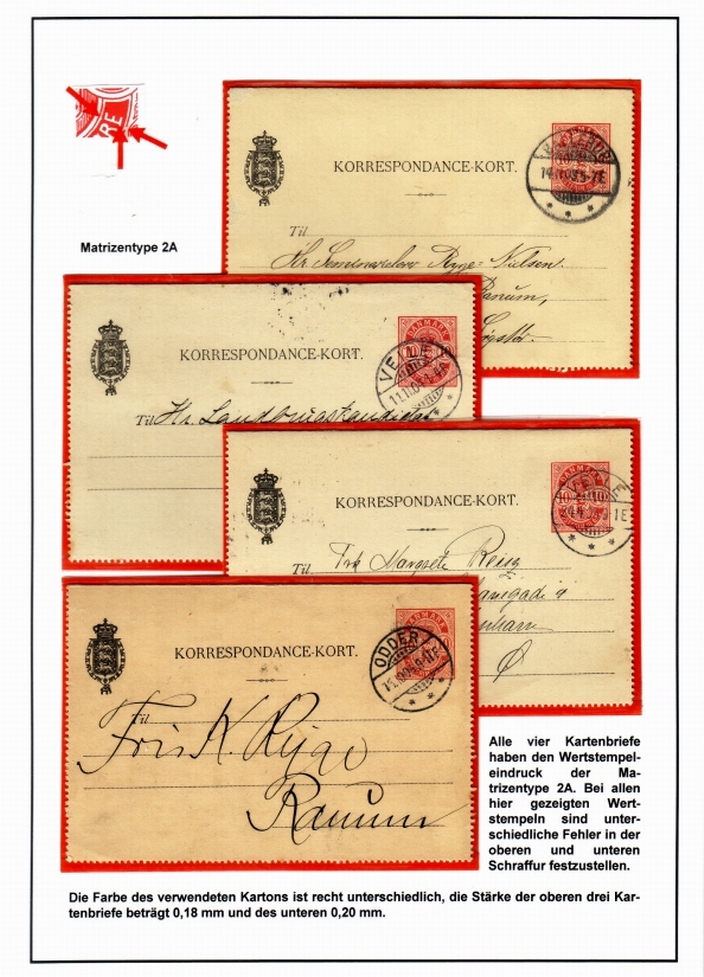 RE
Matrizentype 2A
KORRESPONDANCE-KORT.
Til
Hr. Seminarielærer Ryge-Nielsen.
Ranum,
Løgstør.
DANMARK
VEJLE
KORRESPONDANCE-KORT.
Til Hr. Landbrugskandidat
DANMARK
10 10
KORRESPONDANCE-KORT.
Til Frk Margrete
Ø
DANMARK
ODDER
KORRESPONDANCE-KORT.
Til
Ranum
Alle vier Kartenbriefe
haben den Wertstempel-
eindruck der Ma-
trizentype 2A. Bei allen
hier gezeigten Wert-
stempeln sind unter-
schiedliche Fehler in der
oberen und unteren
Schraffur festzustellen.
Die Farbe des verwendeten Kartons ist recht unterschiedlich, die Stärke der oberen drei Kar-
tenbriefe beträgt 0,18 mm und des unteren 0,20 mm.